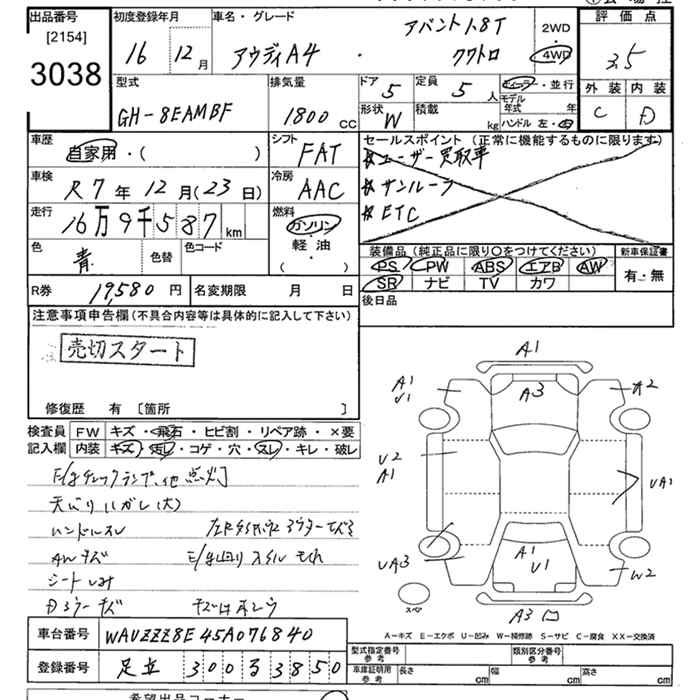 出品番号 初度登録年月 車名・グレード 評価点
[2154]
3038
16 12月 アウディA4 アバント1.8T クワトロ 2WD 4WD 3.5
外装 内装
C D
型式 排気量 ドア 定員 ディーラー・並行
GH-8EAMBF 1800 CC 5 5人 モデル年式 年
形状 積載 W kg ハンドル 左・右
車歴 シフト セールスポイント(正常に機能するものに限ります)
自家用・( ) FAT ★ユーザー買取車
車検 冷房 ★サンルーフ
R7年12月(23日) AAC ★ETC
走行 燃料
16万9千587km ガソリン
軽油
( )
色 色替 色コード
青
装備品(純正品に限り○をつけてください) 新車保証書
PS PW ABS エアB AW 有・無
SR ナビ TV カワ
R券 19,580円 名変期限 月 日 後日品
注意事項申告欄(不具合内容等は具体的に記入して下さい)
売切スタート
修復歴 有 〔箇所 〕
検査員 FW キズ・飛石・ヒビ割・リペア跡・×要
記入欄 内装 キズ・汚レ・コゲ・穴・スレ・キレ・破レ
E/gチェックランプ、他点灯
天バリハガレ(大)
ハンドルスレ
AWキズ
シートしみ
Dミラーキズ
A1
A1
U1
A3
A2
U2
A1
UA1
UA3
A1
U1
W2
スペ
A3
A-キズ E-エクボ U-凹み W-補修跡 S-サビ C-腐食 XX-交換済
車台番号 WAUZZZ8E45A076840
登録番号 足立 300 る 3850
型式指定番号 参考 類別区分番号 参考
車庫証明用 参考 長さ cm 幅 cm 高さ cm
希望出品コーナー